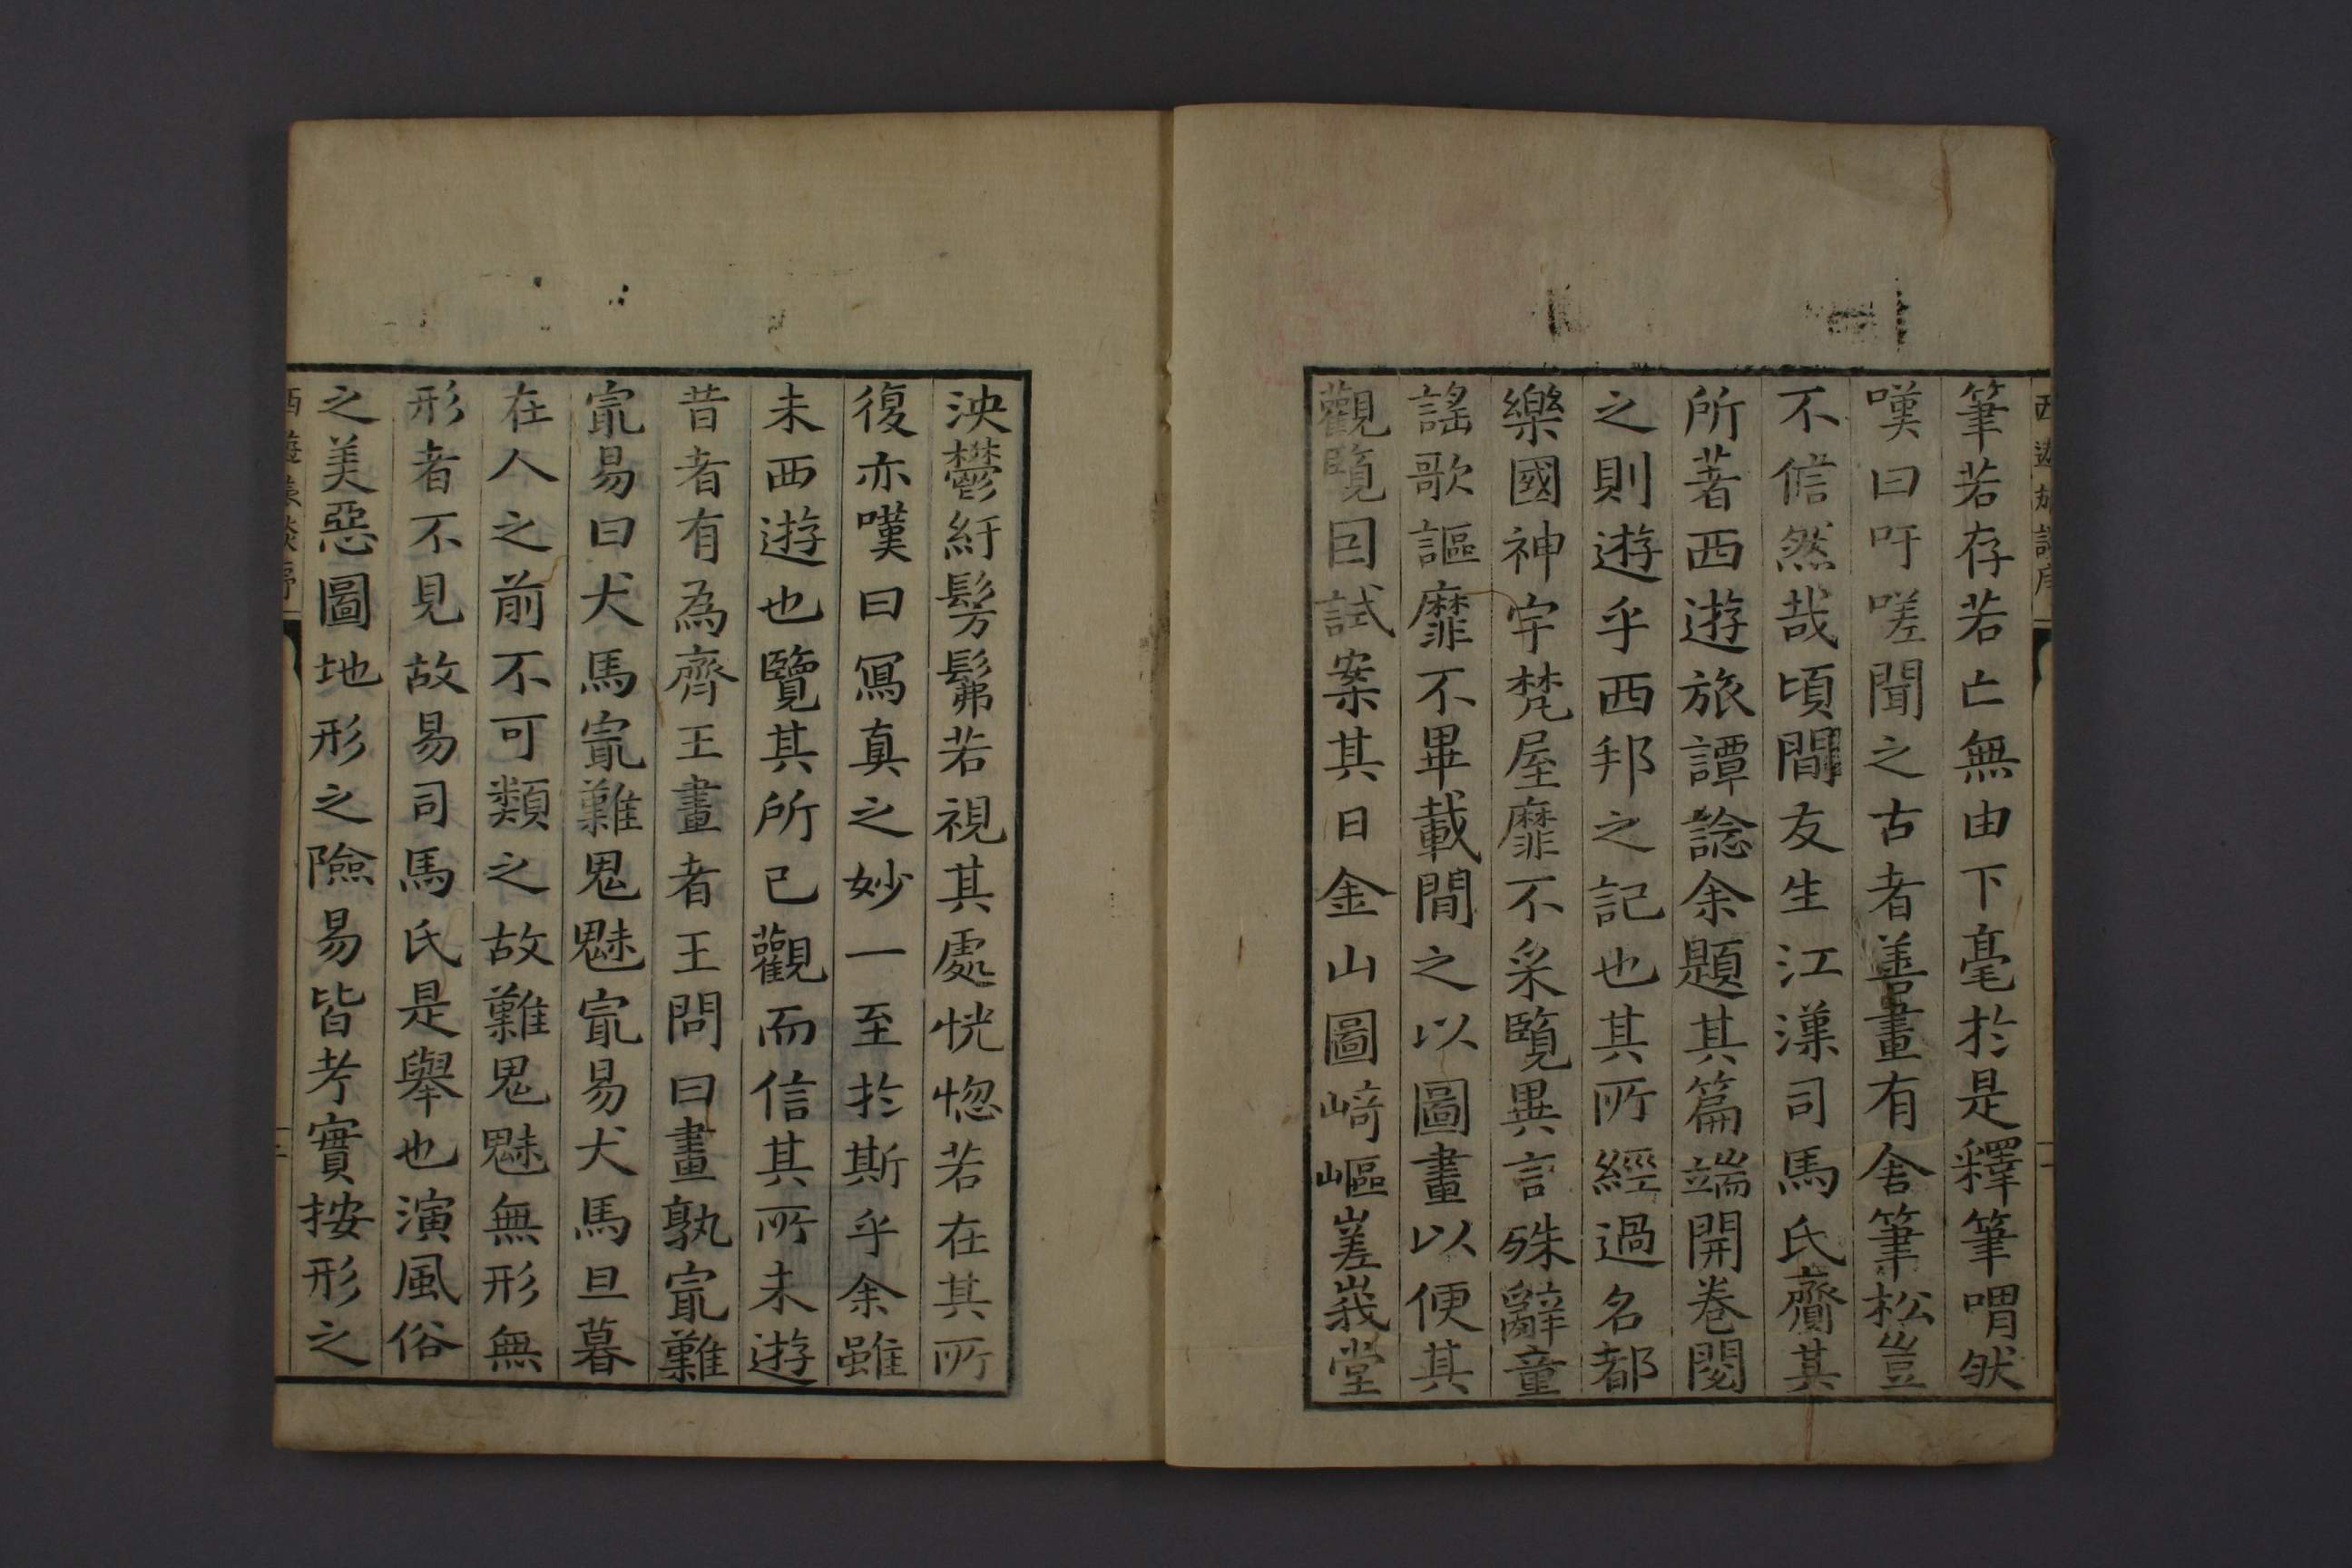 筆若存若亡無由下毫於是釋筆喟然
嘆曰吁嗟聞之古者善畫有舍筆松豈
不信然哉頃間友生江漢司馬氏齎其
所著西遊旅譚諗余題其篇端開卷閱
之則遊乎西邦之記也其所經過名都
樂國神宇梵屋靡不采覽異言殊辭童
謠歌謳靡不畢載間之以圖畫以便其
觀覽因試案其日金山圖崎嶇嵳峩堂
泱鬱紆髣髴若視其處恍惚若在其所
復亦嘆曰寫真之妙一至於斯乎余雖
未西遊也覽其所已觀而信其所未遊
昔者有為齊王畫者王問曰畫孰㝡難
㝡易曰犬馬㝡難鬼魅㝡易犬馬旦暮
在人之前不可類之故難鬼魅無形無
形者不見故易司馬氏是舉也演風俗
之美惡圖地形之險易皆考實按形之